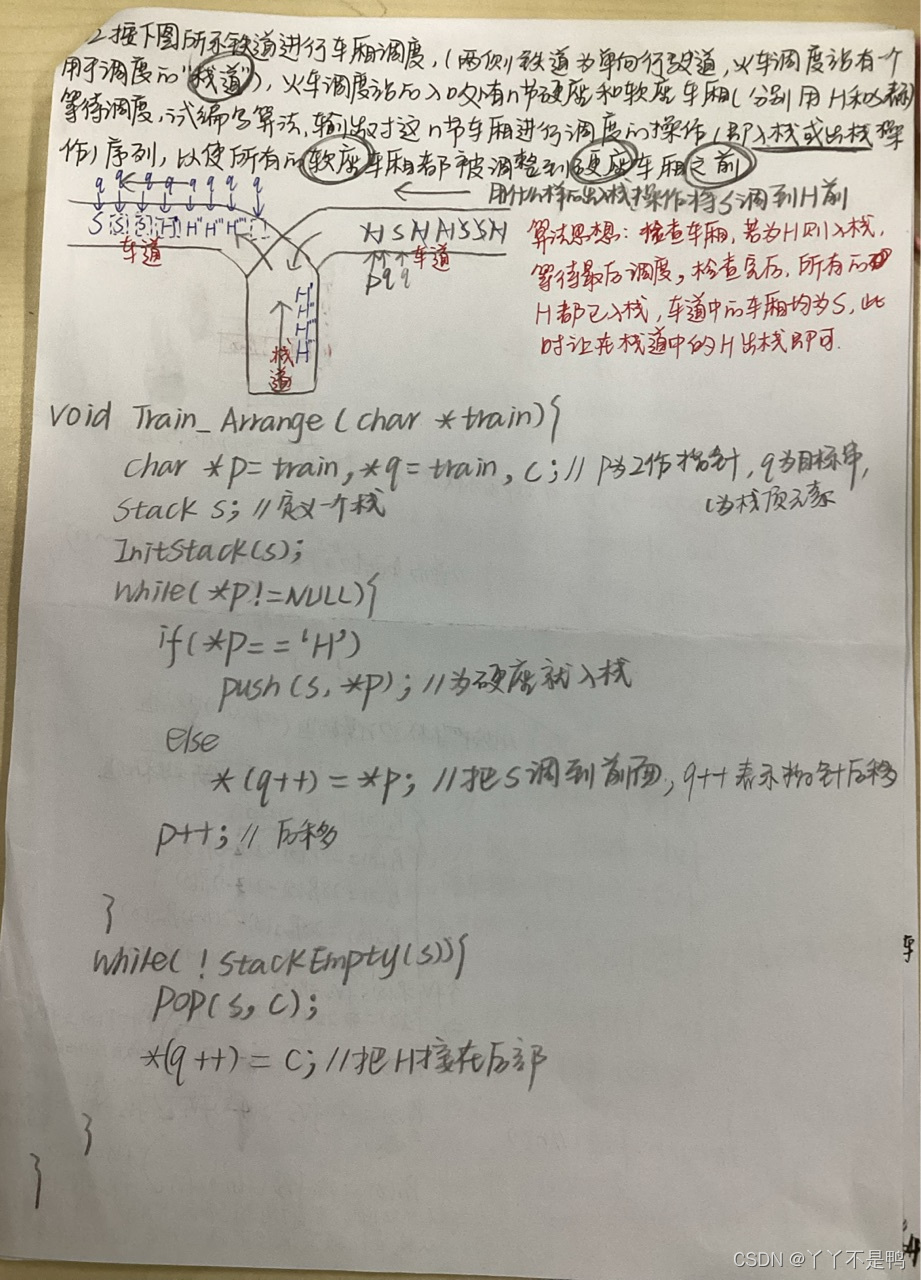 2.按下图所示铁道进行车厢调度,(两侧铁道为单向行驶道,火车调度站有一个
用于调度的"栈道"),火车调度站的入口处有n节硬座和软座车厢(分别用H和S表示)
等待调度,试编写算法,输出对这n节车厢进行调度的操作(即入栈或出栈操
作)序列,以使所有的软座车厢都被调整到硬座车厢之前
用什么样的出入栈操作将S调到H前
q q q q q q q q
S S S H H' H'' H'''
车道
H S H H S S H
p q q 车道
H'
H''
H'''
H
栈道
算法思想:检查车厢,若为H则入栈,
等待最后调度,检查完后,所有的
H都已入栈,车道中的车厢均为S,此
时让在栈道中的H出栈即可.
void Train_Arrange(char *train){
char *p=train,*q=train,c;//p为工作指针,q为目标串,
c为栈顶元素
Stack s;//定义一个栈
InitStack(s);
while(*p!=NULL){
if(*p=='H')
push(s,*p);//为硬座就入栈
else
*(q++)=*p;//把S调到前面,q++表示指针后移
p++;//后移
}
while(!StackEmpty(s)){
POP(s,c);
*(q++)=c;//把H接在后部
}
}
CSDN @丫丫不是鸭